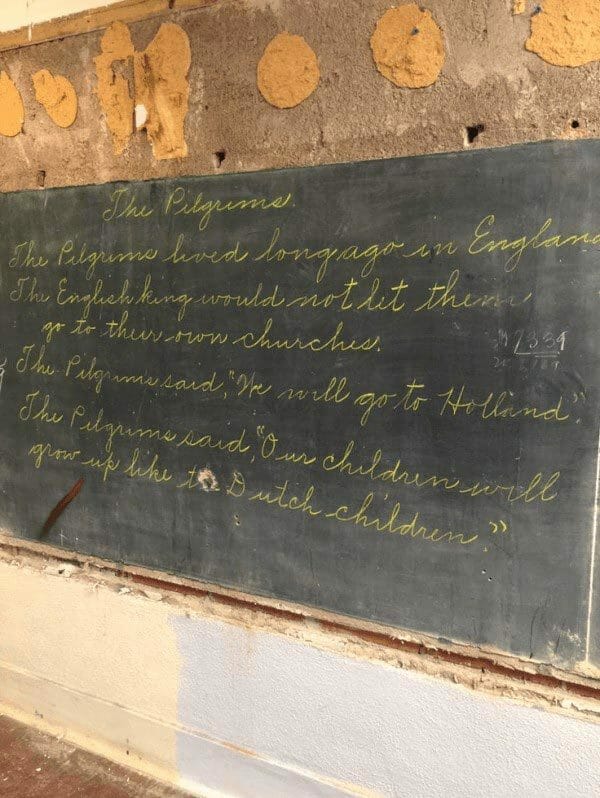 The Pilgrims.
The Pilgrims lived long ago in England
The English king would not let them
go to their own churches.
The Pilgrims said, "We will go to Holland".
The Pilgrims said, "Our children will
grow up like to Dutch children."
7354